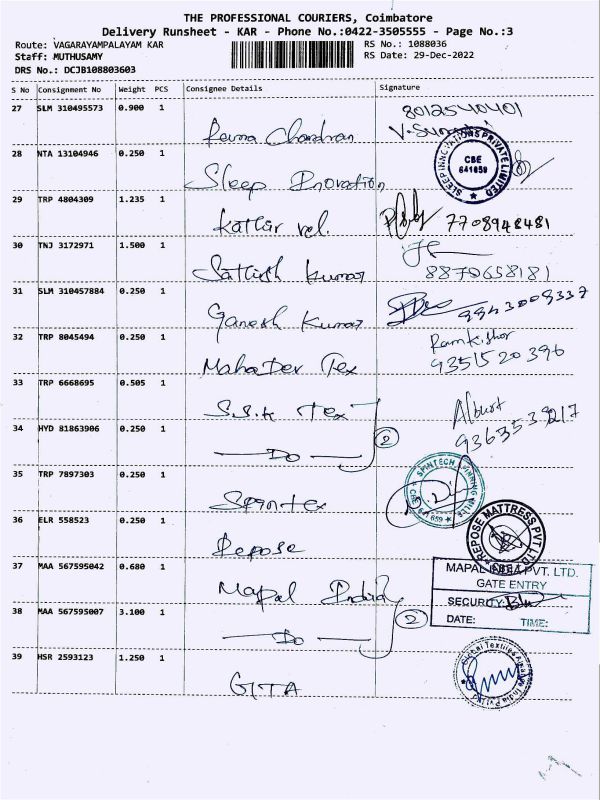 THE PROFESSIONAL COURIERS, Coimbatore
Delivery Runsheet - KAR - Phone No.:0422-3505555 - Page No.:3
Route: VAGARAYAMPALAYAM KAR
RS No.: 1088036
Staff: MUTHUSAMY
RS Date: 29-Dec-2022
DRS No.: DCJB108803603
S No Consignment No Weight PCS Consignee Details Signature
27 SLM 310495573 0.900 1 8012540401
Chandran
28 NTA 13104946 0.250 1 SLEEP INNOVATIONS PRIVATE LIMITED CBE 641659
Sleep Inovation
29 TRP 4804309 1.235 1
Kathir vel. 7708948481
30 TNJ 3172971 1.500 1
Sathish Kumar 8870658181
31 SLM 310457884 0.250 1
Ganesh Kumar 9943009337
32 TRP 8045494 0.250 1 Ramkishor
MahaDev Tex 9351520396
33 TRP 6668695 0.505 1
S.S.K Tex Albert
34 HYD 81863906 0.250 1 2
Do
35 TRP 7897303 0.250 1 SPINTECH SPINNING MILLS
Spintex
36 ELR 558523 0.250 1 REPOSE MATTRESS PVT LTD
Repose
37 MAA 567595042 0.680 1 MAPAL INDIA PVT. LTD.
GATE ENTRY
Mapal India SECURITY:
38 MAA 567595007 3.100 1 2 DATE: TIME:
Do
39 HSR 2593123 1.250 1
GITA